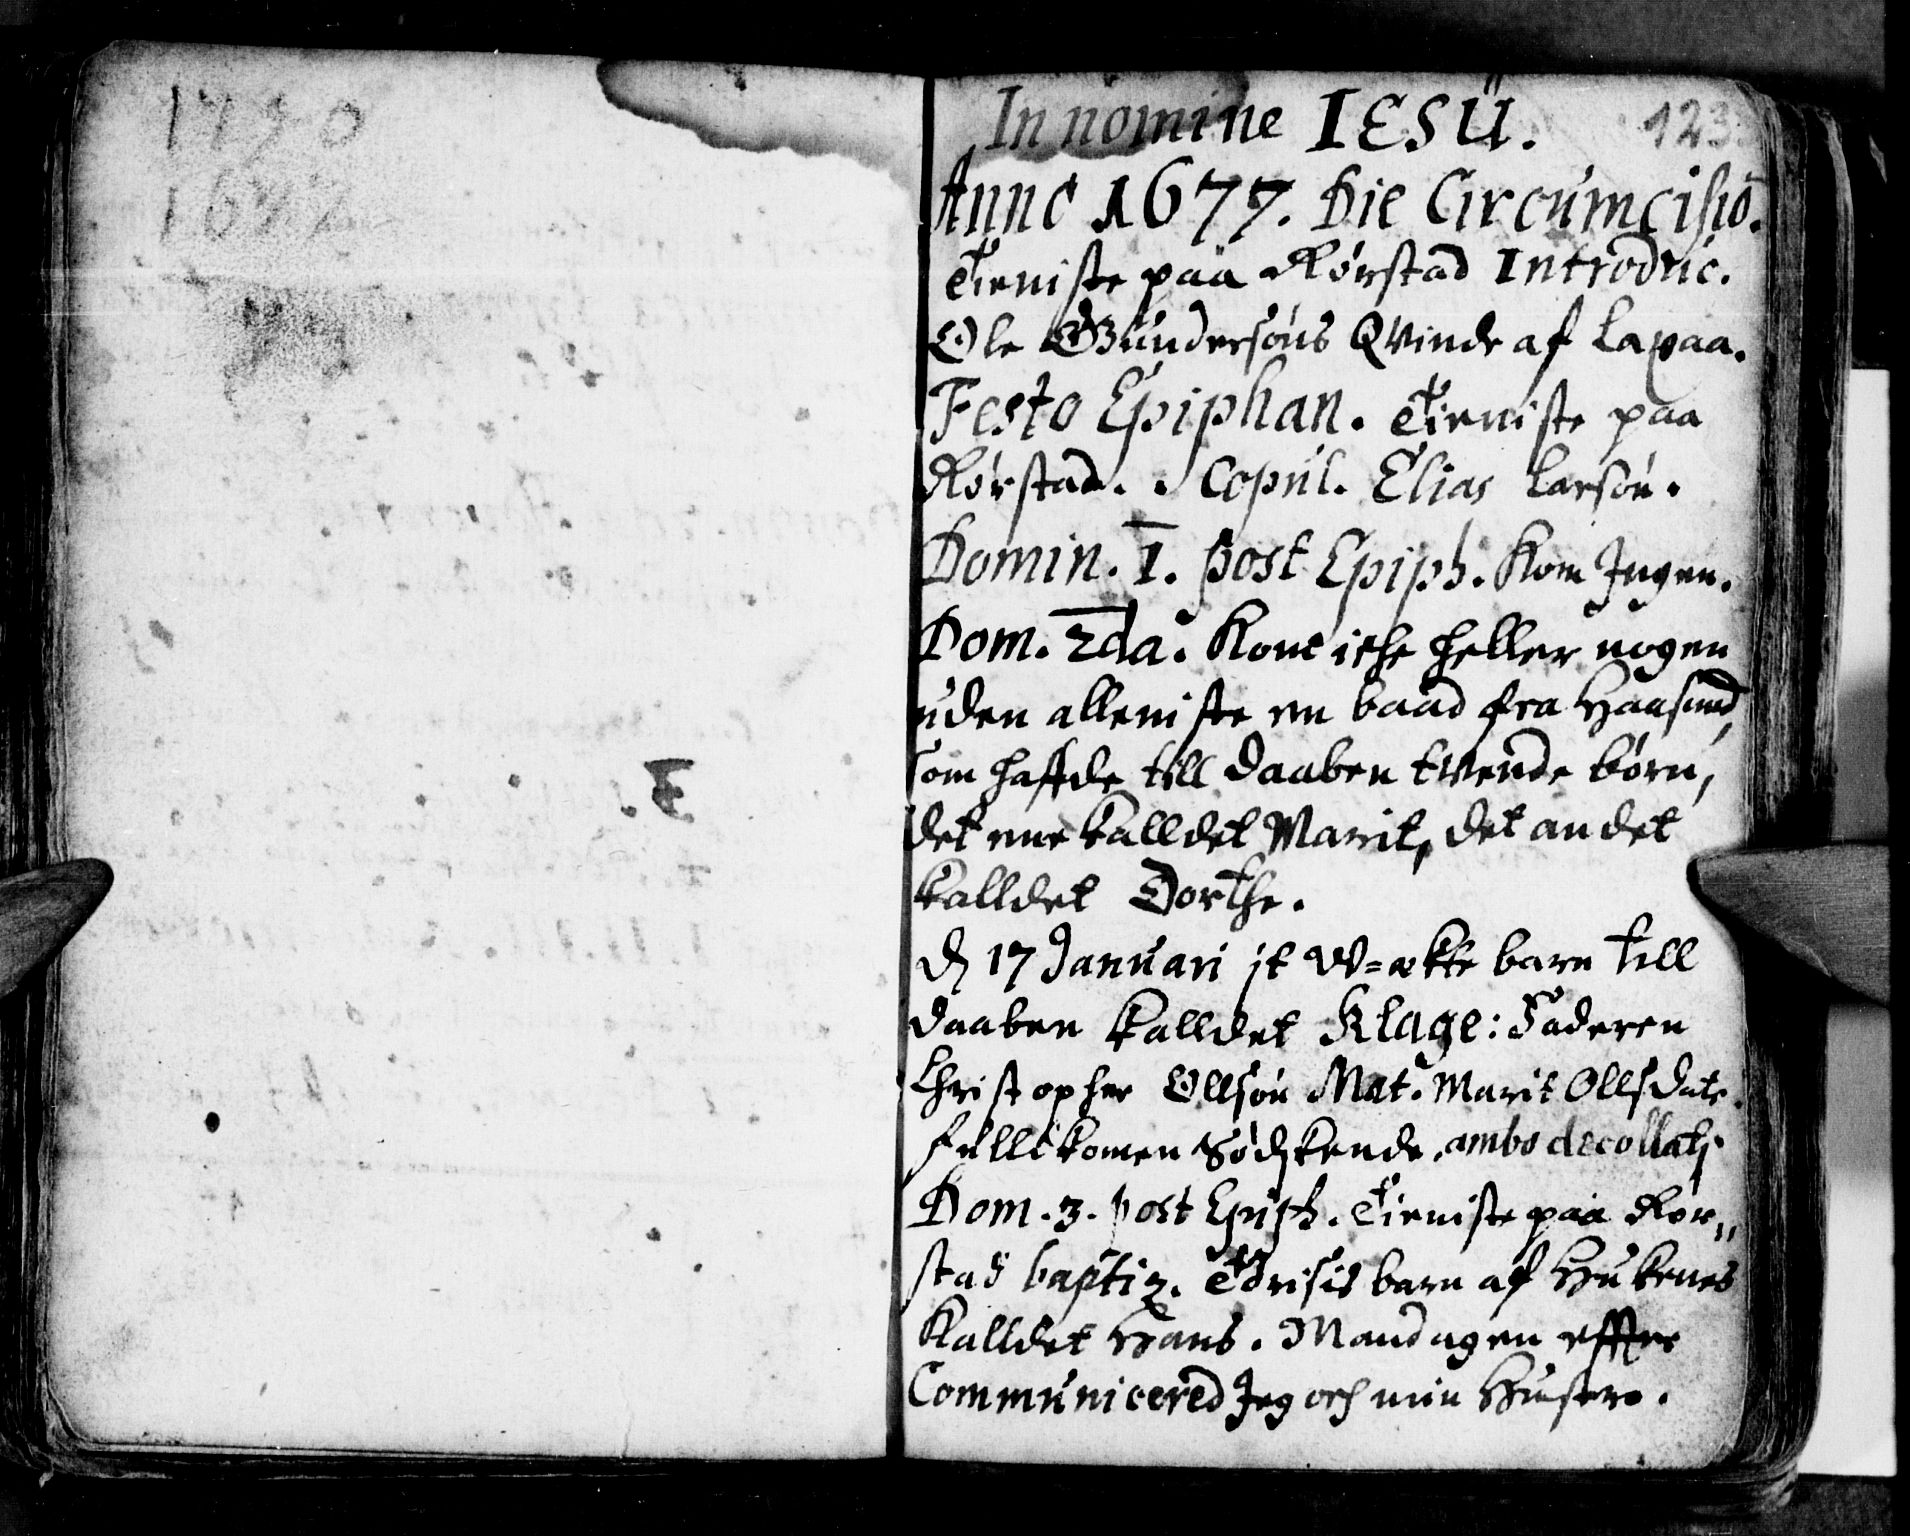 1750
1677
73
3.
123.
In nomine IESU.
Anno 1677. Die Circumcisio.
Tieniste paa Rørstad Introduc.
Ole Gundersøns Qvinde af Lapaa.
Festo Epiphan. Tieniste paa
Rørstad. . Copul. Elias Larsøn.
Domin. 1. post Epiph. Kom Ingen.
Dom. 2da. Kom iche heller nogen
uden alleniste en baad fra Haasund,
som hafde till daaben tvende børn,
det ene kalldet Marit, det andet
kalldet Dorthe.
D 17 Januari it W=ækte barn till
daaben kalldet Klage: Faderen
Christopher Ollsøn Mat. Marit Ollsdate.
fullkomen Sødskende. ambo decollati.
Dom. 3. post Epiph. Tieniste paa Rør,,
stad baptiz. barn af Hukenes
Kalldet Hans. Mandagen effter
Communicered Jeg och min Hustro.